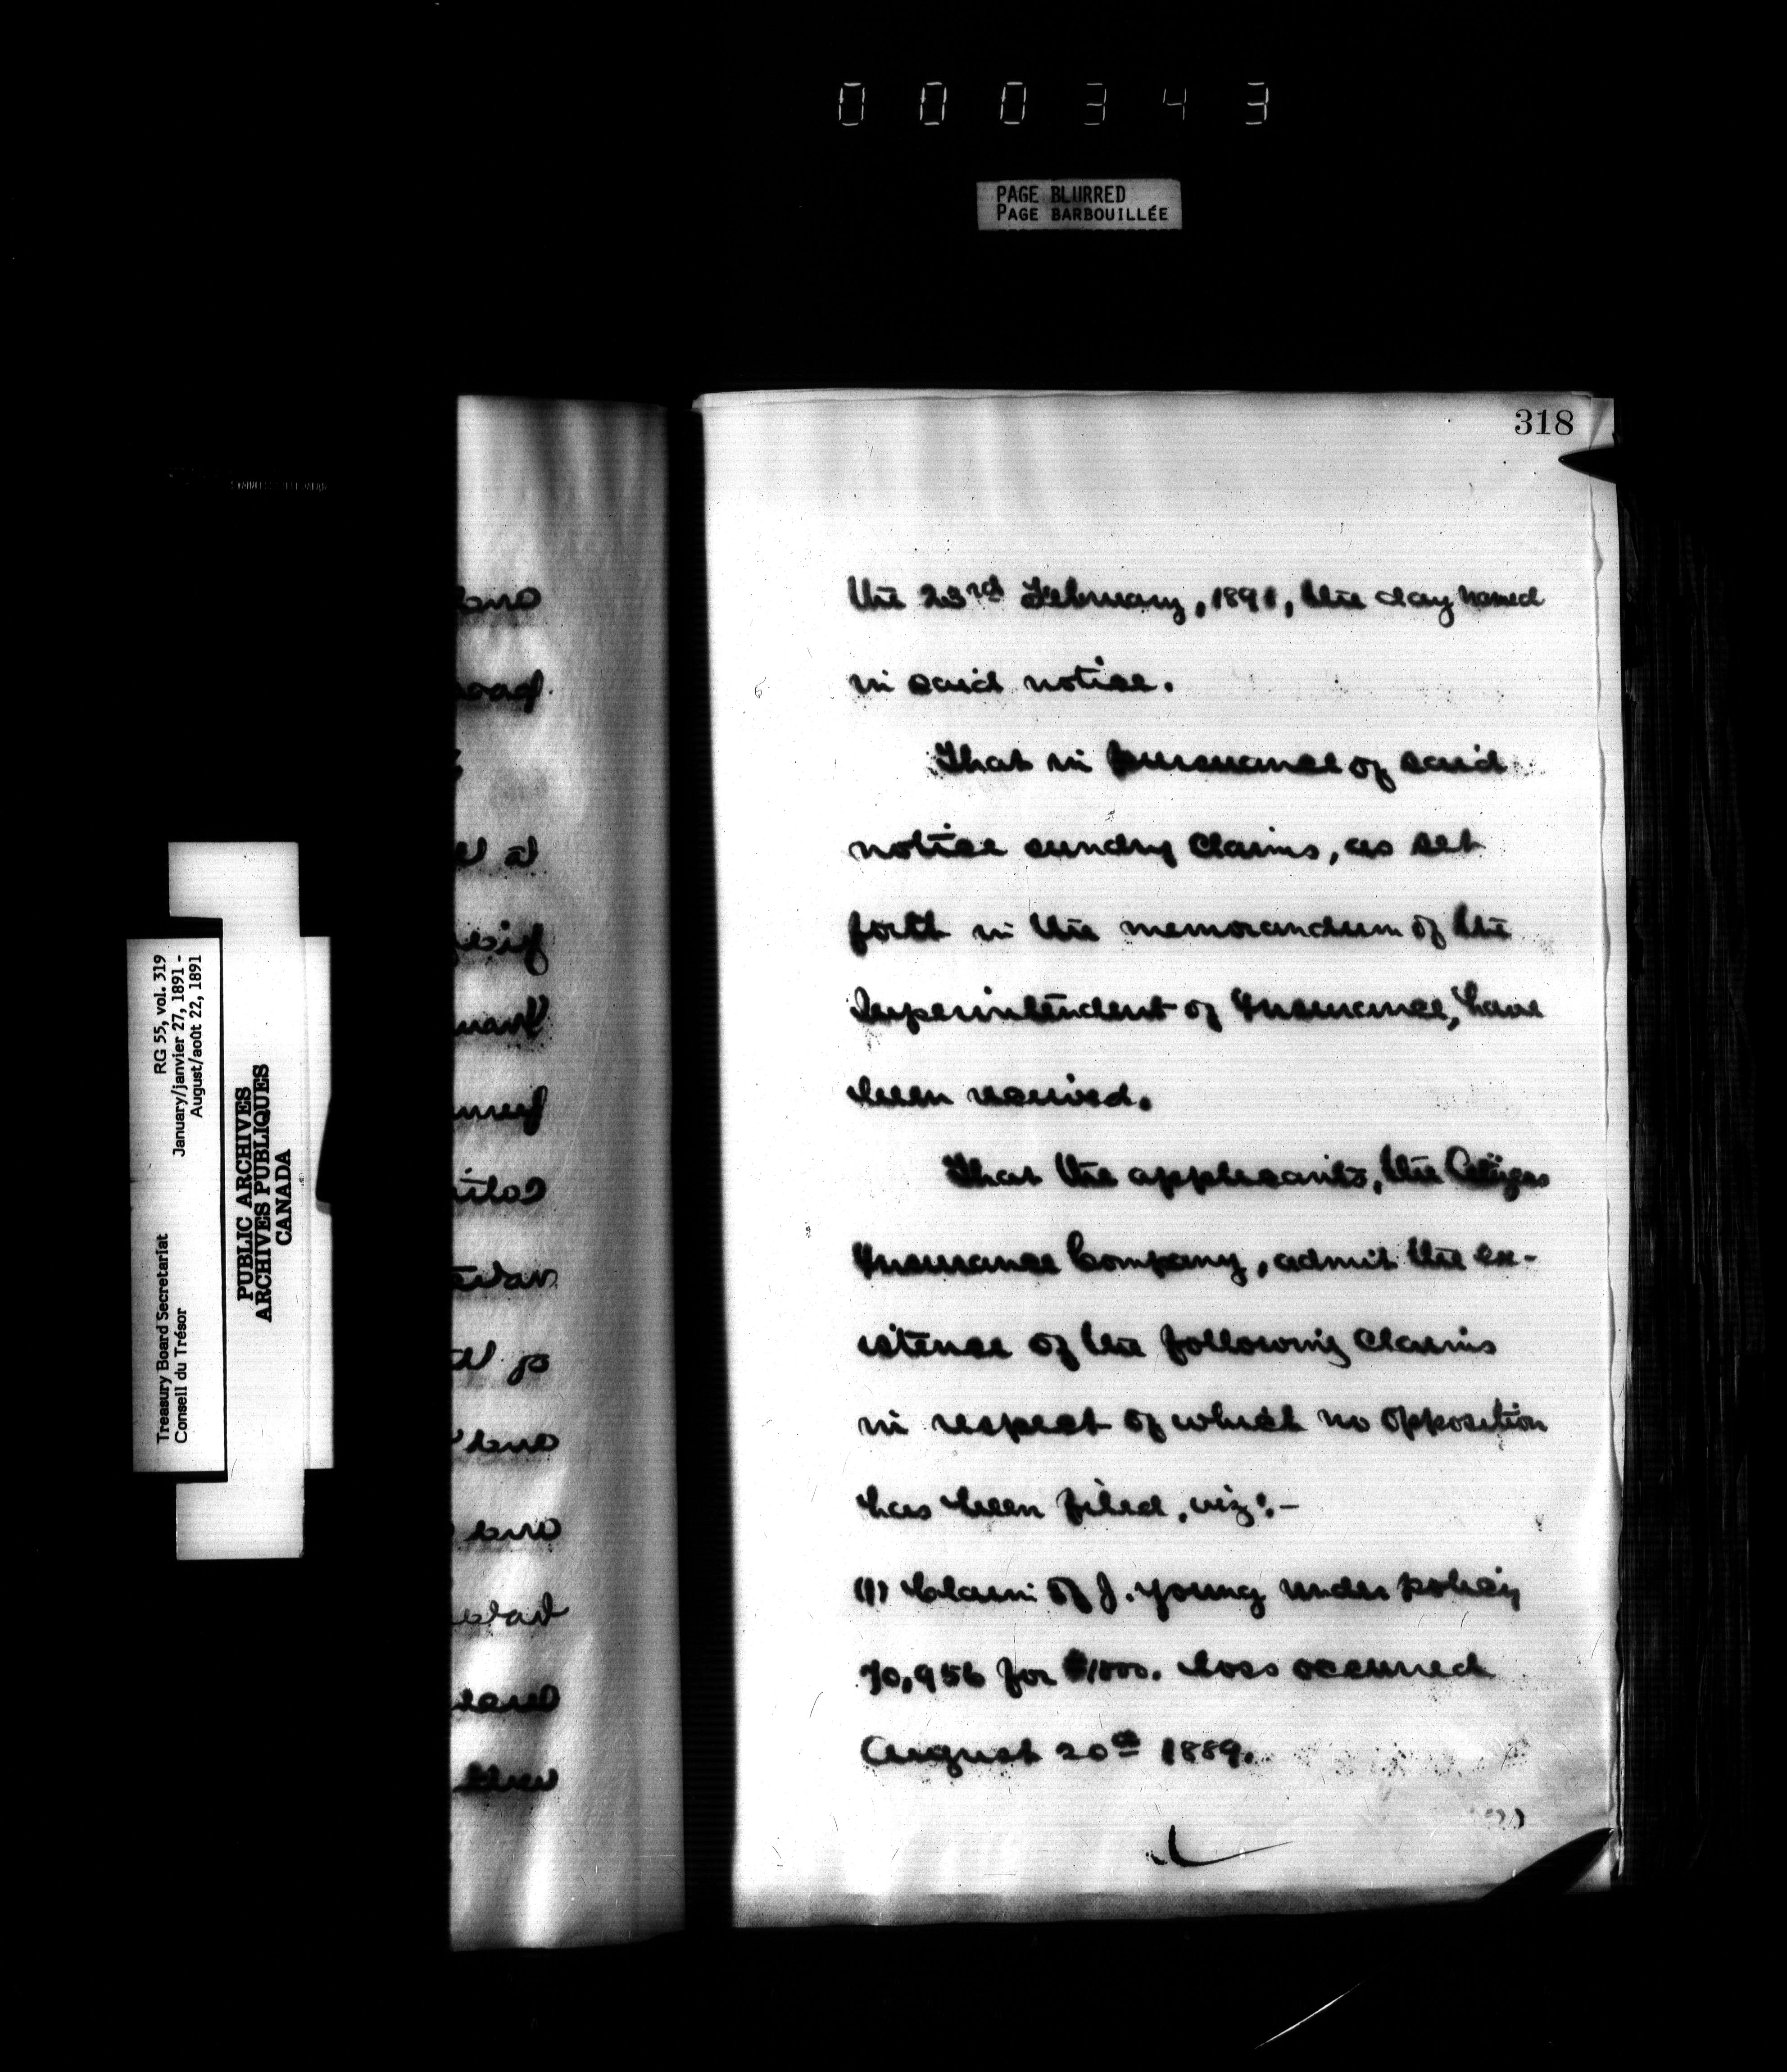 000343
PAGE BLURRED
PAGE BARBOUILLÉE
318
the 23rd February, 1891, the day named
in said notice.
That in pursuance of said
notice sundry claims, as set
forth in the memorandum of the
Superintendent of Insurance, have
been received.
That the applicants, the Citizens
Insurance Company, admit the ex-
istence of the following claims
in respect of which no opposition
has been filed, viz:-
(1) Claim of J. Young under policy
70,956 for $1000. Loss occurred
August 20th 1889.
(2)
Treasury Board Secretariat RG 55, vol. 319
Conseil du Trésor January/janvier 27, 1891 -
August/août 22, 1891
PUBLIC ARCHIVES
ARCHIVES PUBLIQUES
CANADA